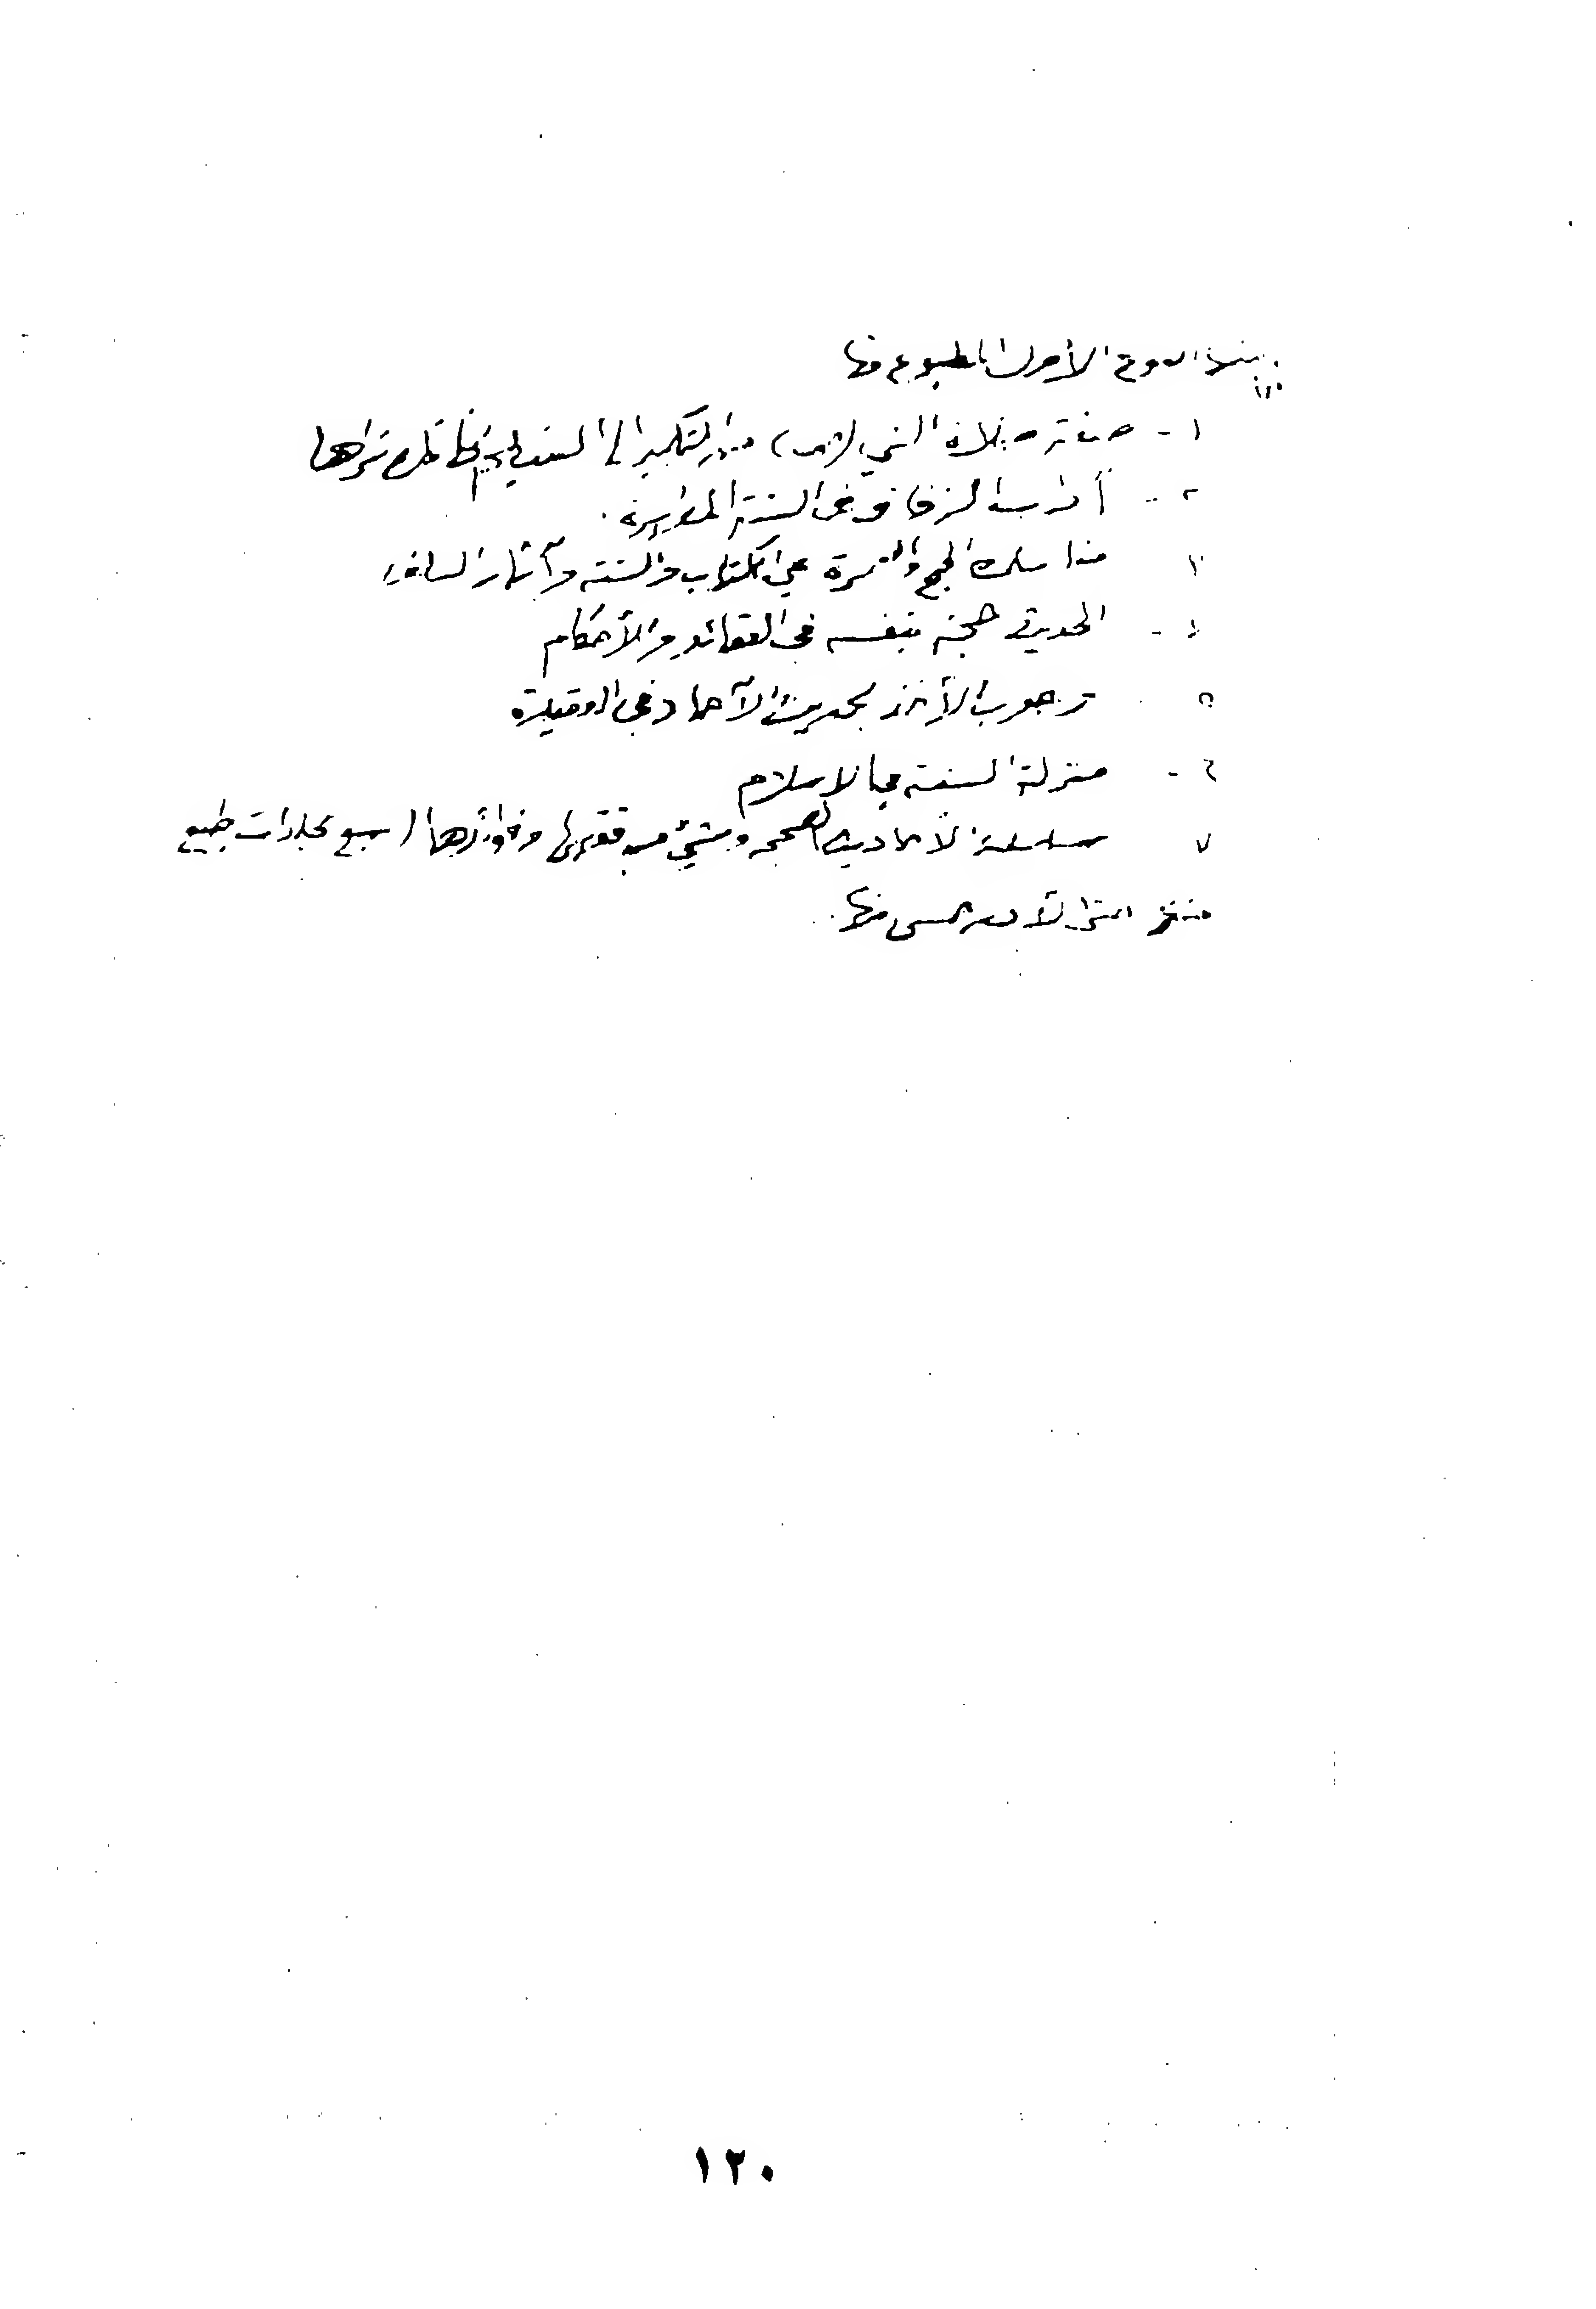 النوع الأول المطبوع منها
١ - صفة صلاة النبي (ص) من التكبير إلى التسليم كأنك تراها
٢ - آداب الزفاف في السنة المطهرة .
٣ مناسك الحج والعمرة في الكتاب والسنة وآثار السلف
٤ - الحديث حجة بنفسه في العقائد والأحكام
٥ وجوب الأخذ بحديث الآحاد في العقيدة
٦ - منزلة السنة في الاسلام
٧ سلسلة الأحاديث الصحيحة وشيء من فقهها وفوائدها (سبع مجلدات طبع
منها
١٢٠